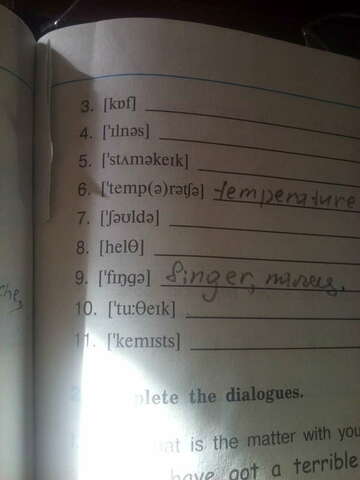 3. [kɒf]
4. [ˈɪlnəs]
5. [ˈstʌməkeɪk]
6. [ˈtemp(ə)rətʃə] temperature
7. [ˈʃəʊldə]
8. [helθ]
9. [ˈfɪŋgə] finger, палець.
10. [ˈtuːθeɪk]
11. [ˈkemɪsts]
plete the dialogues.
at is the matter with you
have got a terrible